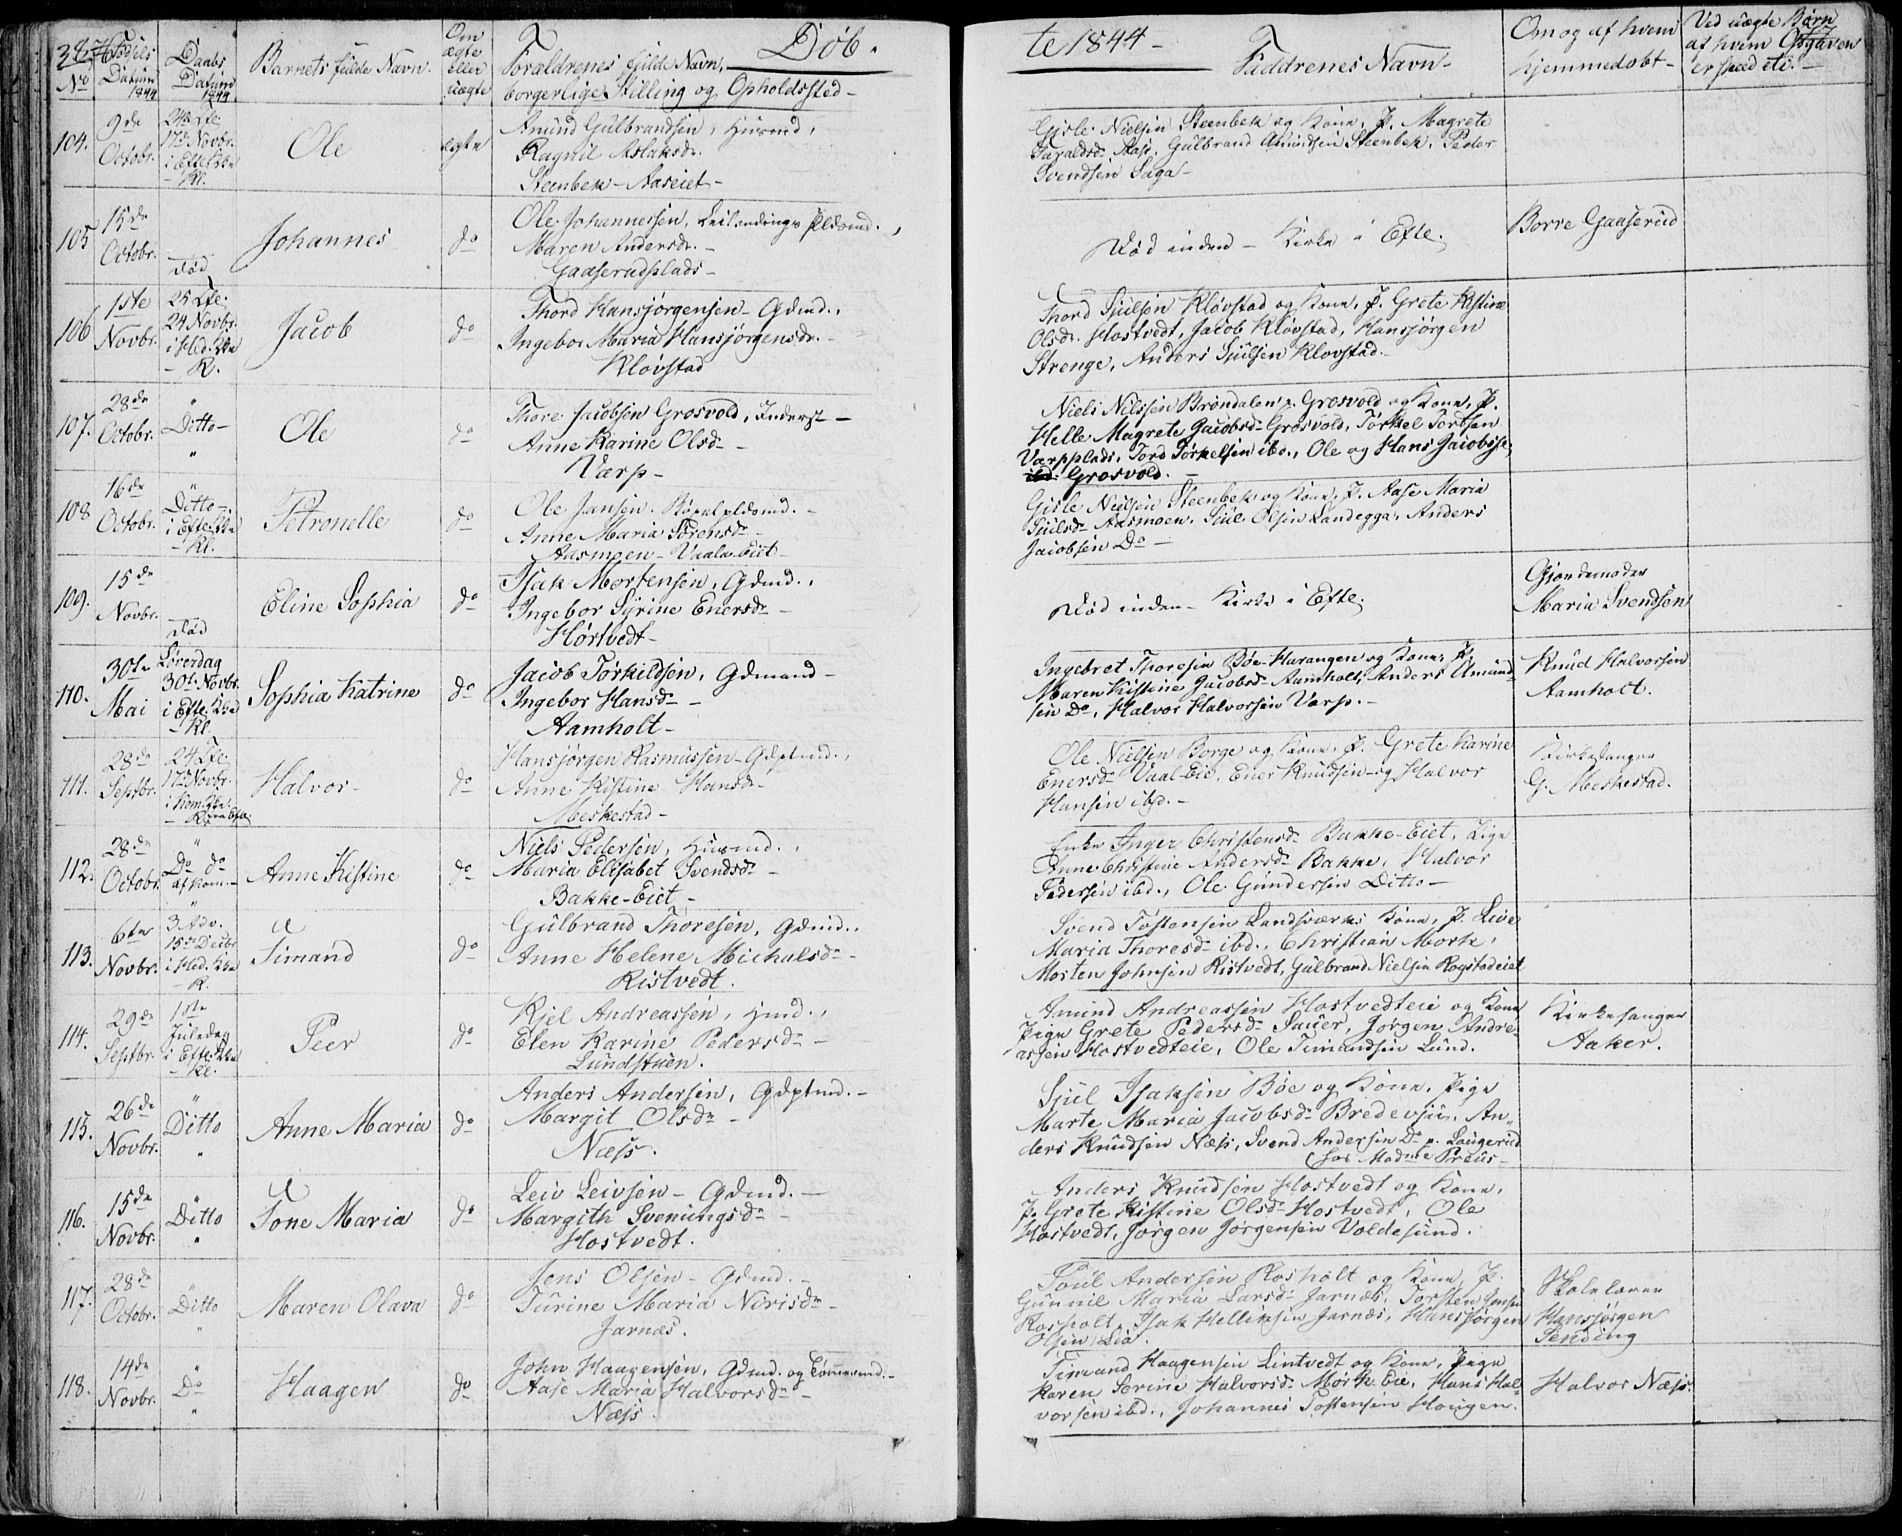 38
Døb-
te 1844-
No
Fødsels Datum 1844
Daabs Datum 1844
Barnets fulde Navn.
Om ægte eller uægte
Forældrenes fulde Navn, borgerlige Stilling og Opholdssted-
Faddrenes Navn-
Om og af hvem hjemmedøbt-
Ved uægte Børn af hvem Opgaven er skeed etc.-
104. 9de Octobr. 17de Novbr. i Efte. Kl. Ole egte
Amund Gulbrandsen, Husmd,
Ragnil Aslaksdr.
Steenbek-Aaseiet-
Gisle Nielsen Steenbek og Kone, P. Magrete
Taraldsd. Aase, Gulbrand Amundsen Steenbek, Peder
Svendsen Saga-
105 15de Octobr. død Johannes do
Ole Johannessen, Pldsmd.,
Maren Andersdr.-
Gaaserudplads-
Død inden- Kirke i Efte.
Borre Gaaserud
106 1ste Novbr. 24 Novbr. i Hed. K. Jacob do
Thord Hansjørgensen- Gdmd.,
Ingebor Maria Hansjørgensdr.-
Kløvstad
Thord Sjulsen Kløvstad og Kone, P. Grete Kistine
Olsdr. Hostvedt, Jacob Kløvstad, Hansjørgen
Strenge, Anders Sjulsen Klovstad-
107. 28de Octobr. Ditto- Ole do
Thore Jacobsen Grosvold, Inderst-
Anne Karine Olsd-
Værp-
Niels Nilssen Brøndalen p. Grosvold og Kone, P.
Helle Magrete Jacobsd. Grosvold, Torkel Torbsen
Værpplads, Tord Torkelsen ibd., Ole og Hans Jacobsse
Grosvold.-
108 16de Octobr. Ditto- i Efte. Kl. Petronelle do
Ole Jansen, Pldsmd.-
Anne Maria Sørensdr
Aasmoen- Vaale-Eiet-
Gisle Nielsen Steenbek og Kone, P. Aase Maria
Sjulsdr Aasmoen, Sjul Olsen Landegga, Anders
Jacobsen Do-
109. 15de Novbr. død Eline Sophia do
Isak Mortensen, Gdmd.,
Ingebor Syrine Enersdr-
Hørtvedt-
Død inden- Kirke i Efte.
Gjordemoder
Maria Svendsen
110. 30te Mai Løverdag 30te Novbr. i Efte. Kl. Sophia Katrine do
Jacob Torkildsen, Gdmand-
Ingebor Hansd-
Aamholt-
Ingebret Thoresen Bøe-Harangen og Kone, P.
Maren Kistine Jacobsd. Aamholt, Anders Amund-
sen Do, Halvor Halvorsen Værp.-
Knud Halvorsen
Aamholt.
111. 28de Septbr. 17de Novbr. Halvor- do
Hansjørgen Rasmussen- Gdptmd.,
Anne Kistine Hansdr-
Meskestad-
Ole Nielsen Borge og Kone, P. Grete Karine
Enersdr Vaal-Eie, Ener Knudsen og Halvor
Hansen ibd.-
Kirkesanger
G. Meskestad.
112. 28de Octobr. Do do Anne Kistine do
Niels Pedersen, Husmd.,
Maria Elisabet Svendsdr-
Bakke-Eiet-
Enke Inger Christensdr Bakke-Eiet, Pige
Anne Christine Andersdr Bakke, Halvor
Pedersen ibd., Ole Gundersen Ditto-
113. 6te Novbr. 3 Adv. 15de Decbr. i Hed. K. Timand do
Gulbrand Thoresen, Gdmd.,
Anne Helene Michalsdr-
Ristvedt.
Svend Tostensen Landsværks Kone, P. Live
Maria Thoresdr ibd., Christian Mork,
Morten Johnsen Ristvedt, Gulbrand Nielsen Rogstadeiet
114. 29de Septbr. 1ste Juledag i Efte. Kl. Peer do
Kiel Andreassen, Hmd.,
Elen Karine Pedersdr-
Lundstuen.
Amund Andreassen Hostvedteie og Kone,
Pige Grete Pedersdr Sauer, Jørgen Andre-
assen Hostvedteie, Ole Timandsen Lund.
Kirkesanger
Aaker.
115. 26de Novbr. Ditto Anne Maria do
Anders Andersen, Gdptmd.-
Margit Olsdr-
Næss.
Sjul Isaksen Bøe og Kone, Pige
Marte Maria Jacobsdr Bredevju, An-
ders Knudsen Næss, Svend Andersen Do p. Laugerud
hos Madme Preus-
116. 15de Novbr. Ditto Tone Maria do
Leiv Leivsen- Gdmd.-
Margith Svenungsdr-
Hostvedt.
Anders Knudsen Hostvedt og Kone,
P. Grete Kistine Olsdr Hostvedt, Ole
Hostvedt, Jørgen Jørgensen Voldesund.
117. 28de Octobr. Ditto Maren Olava do
Jens Olsen- Gdmd.-
Turine Maria Nirisdr-
Jarnæs.
Poul Andersen Rosholt og Kone, P.
Gunnil Maria Larsdr Jarnæs, Torsten Jensen
Rosholt, Isak Helliksen Jarnæs, Hansjørgen
Olsen Lia.
Skolelærer
Hansjørgen
Sending
118. 14de Novbr. Do Haagen do
John Haagensen, Gdmd. og Tømmermd.-
Aase Maria Halvorsdr-
Næss.
Timand Haagensen Lintvedt og Kone, Pige
Karen Serine Halvorsdr Mørk Eie, Hans Hal-
vorsen ibd., Johannes Tostensen Hougen.
Halvor Næss.